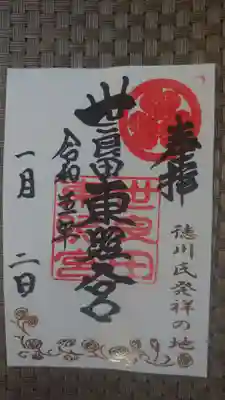 奉拝
徳川氏発祥の地
世良田東照宮
世良田
東照宮
令和五年
一月二日